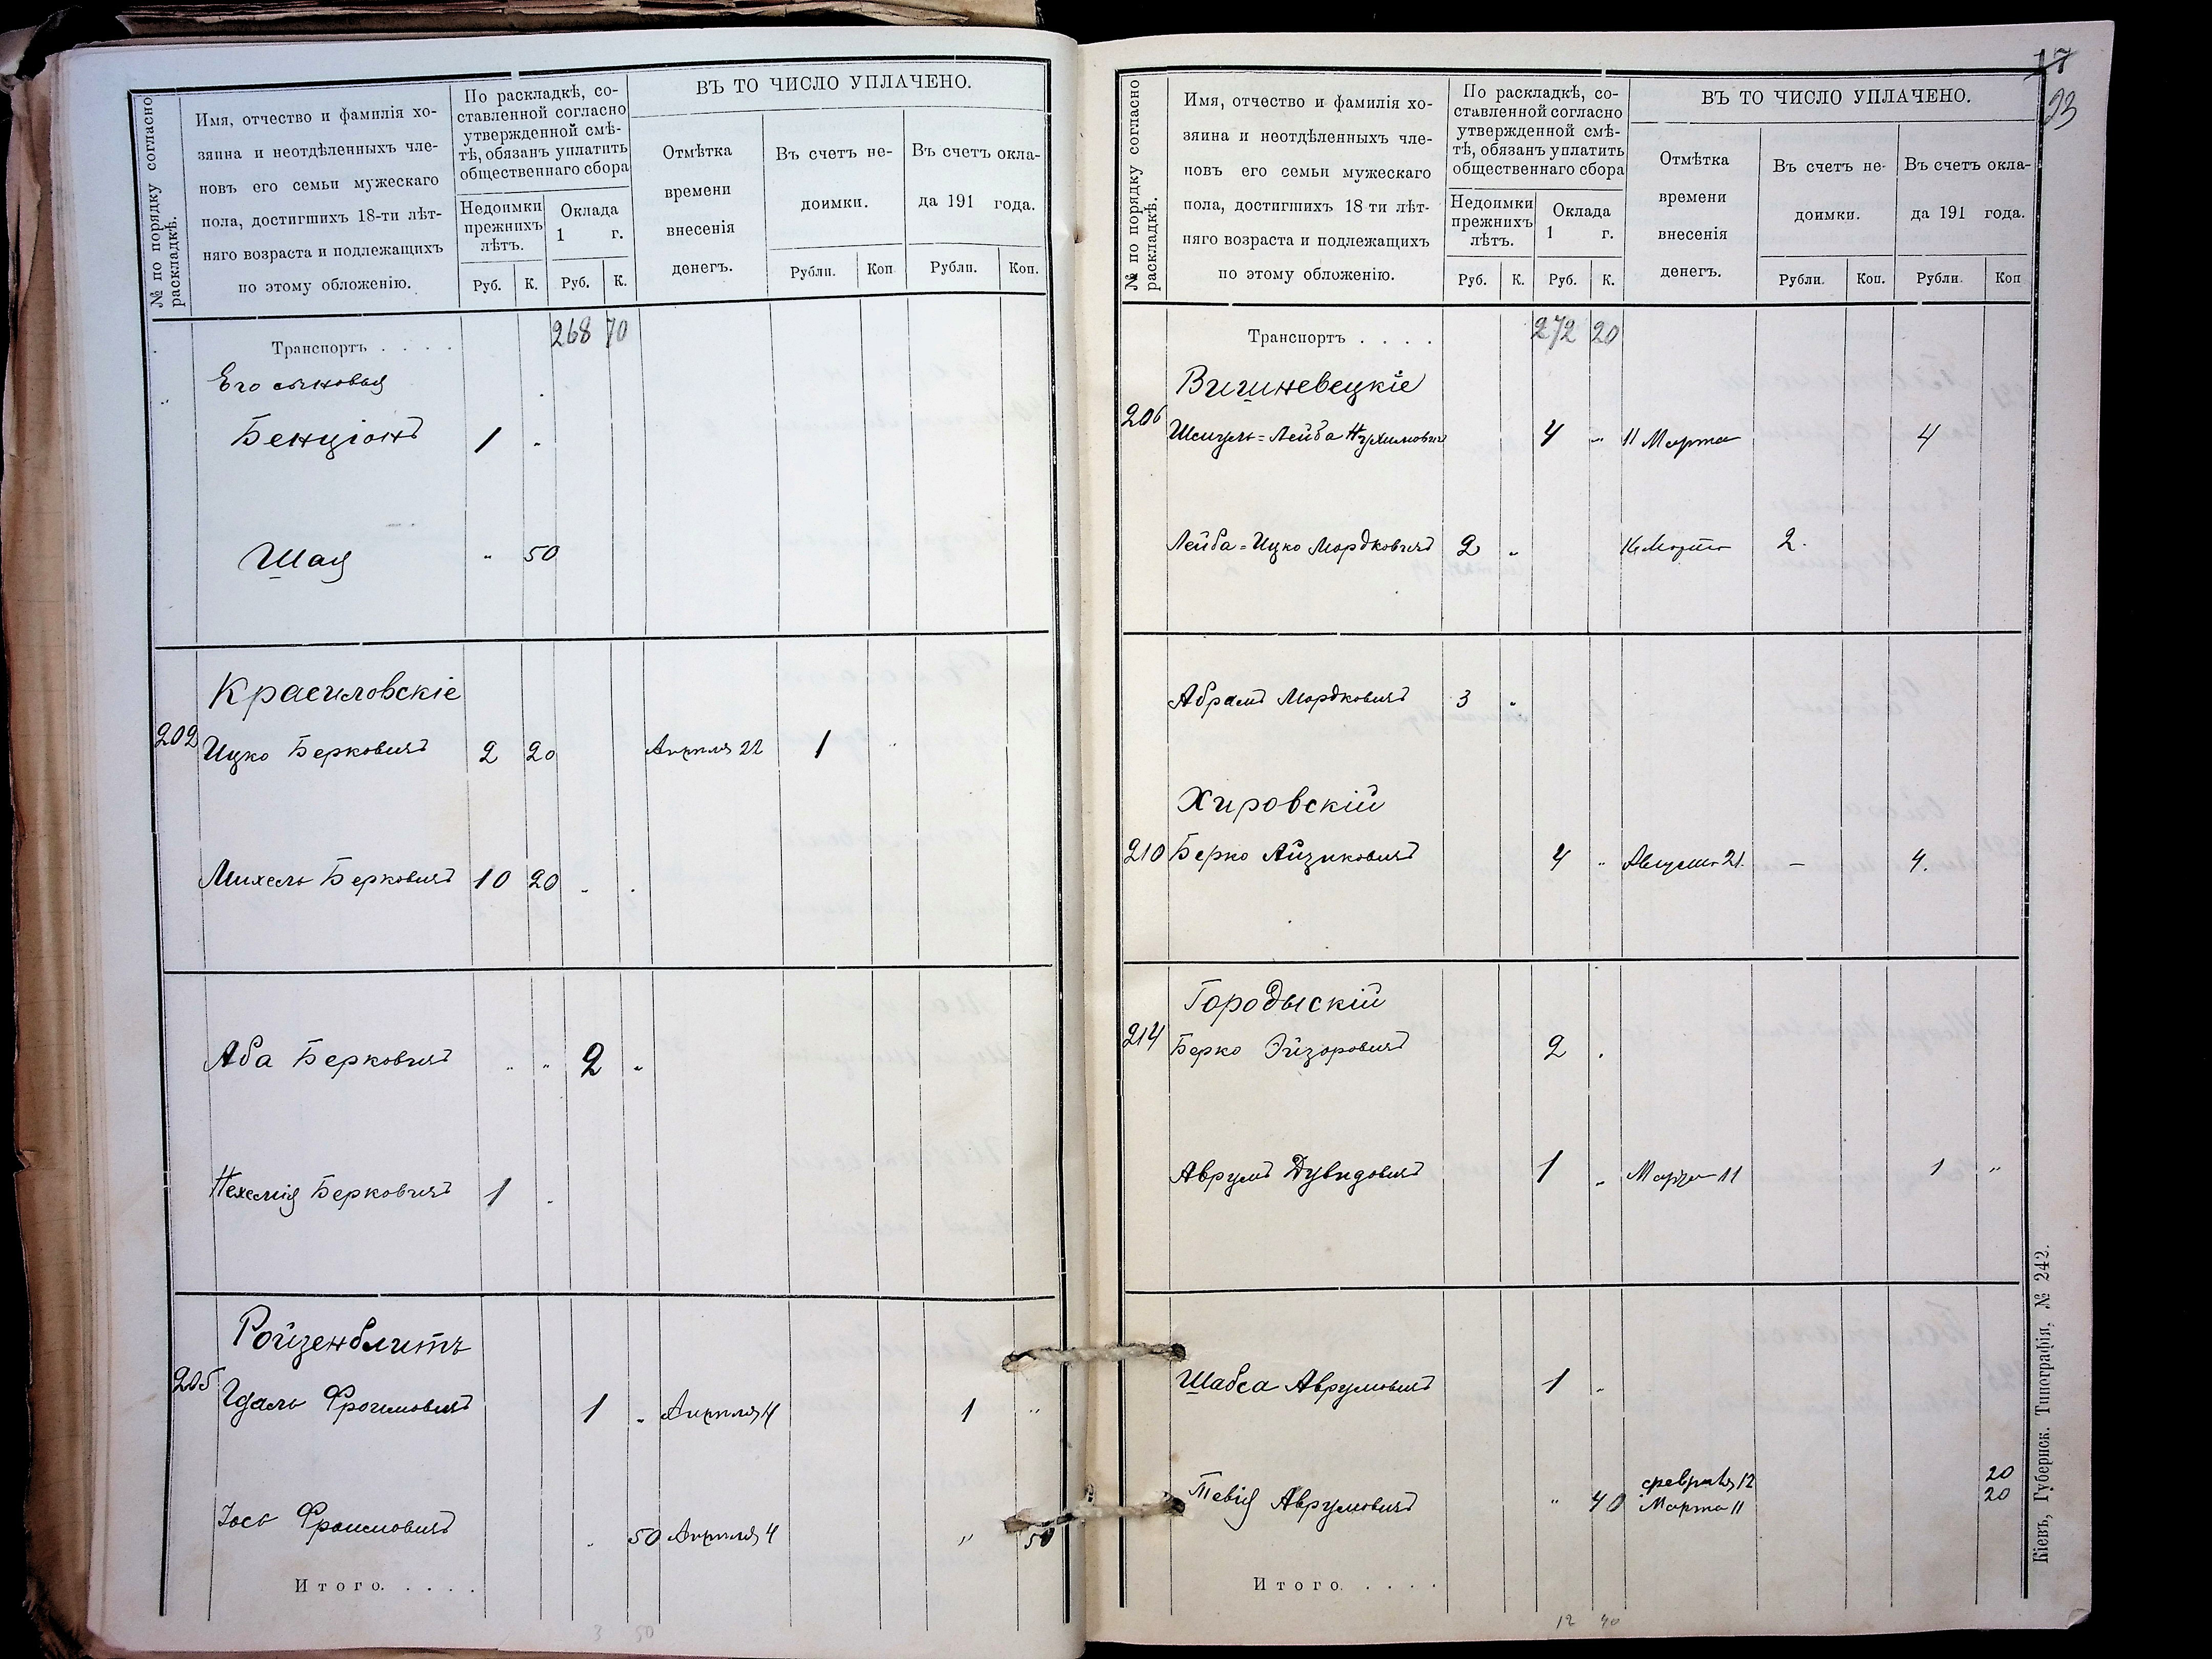 № по порядку согласно
раскладкѣ.
Имя, отчество и фамилія хо-
зяина и неотдѣленныхъ чле-
новъ его семьи мужескаго
пола, достигшихъ 18-ти лѣт-
няго возраста и подлежащихъ
по этому обложенію.
По раскладкѣ, со-
ставленной согласно
утвержденной смѣ-
тѣ, обязанъ уплатить
общественнаго сбора
Недоимки
прежнихъ
лѣтъ.
Оклада
1 г.
Руб. К. Руб. К.
ВЪ ТО ЧИСЛО УПЛАЧЕНО.
Отмѣтка
времени
внесенія
денегъ.
Въ счетъ не-
доимки.
Въ счетъ окла-
да 191 года.
Рубли. Коп Рубли. Коп.
Транспортъ . . . . 268 70
Его сыновья
Бенціонъ 1 "
Шая " 50
Красиловскіе
202 Ицко Берковичъ 2 20 Апрѣля 22 1 "
Михель Берковичъ 10 20 " "
Аба Берковичъ " " 2 "
Нехемія Берковичъ 1 "
Ройзенблитъ
205 Гдаль Фроимовичъ 1 " Апрѣля 4 1 "
Іось Фроимовичъ " 50 Апрѣля 4 " 50
Итого. . . . .
3 50
17
93
№ по порядку согласно
раскладкѣ.
Имя, отчество и фамилія хо-
зяина и неотдѣленныхъ чле-
новъ его семьи мужескаго
пола, достигшихъ 18 ти лѣт-
няго возраста и подлежащихъ
по этому обложенію.
По раскладкѣ, со-
ставленной согласно
утвержденной смѣ-
тѣ, обязанъ уплатить
общественнаго сбора
Недоимки
прежнихъ
лѣтъ.
Оклада
1 г.
Руб. К. Руб. К.
ВЪ ТО ЧИСЛО УПЛАЧЕНО.
Отмѣтка
времени
внесенія
денегъ.
Въ счетъ не-
доимки.
Въ счетъ окла-
да 191 года.
Рубли. Коп. Рубли. Коп
Транспортъ . . . . 272 20
Вишневецкіе
206 Лейба Нухимовичъ 4 " 11 Марта 4
Лейба=Ицко Мордковичъ 2 " Марта 2.
Абрамъ Мордковичъ 3 "
Хировскій
210 Берко Айзиковичъ 4 " Августа 21. — 4.
Городыскій
214 Берко Эйзоровичъ 2 "
Аврумъ Дувидовичъ 1 " Марта 11 1 "
Шабса Аврумовичъ 1 "
февраля 12 20
Тевія Аврумовичъ " 40 Марта 11 20
Итого. . . . .
12 40
Кіевъ, Губернск. Типографія, № 242.